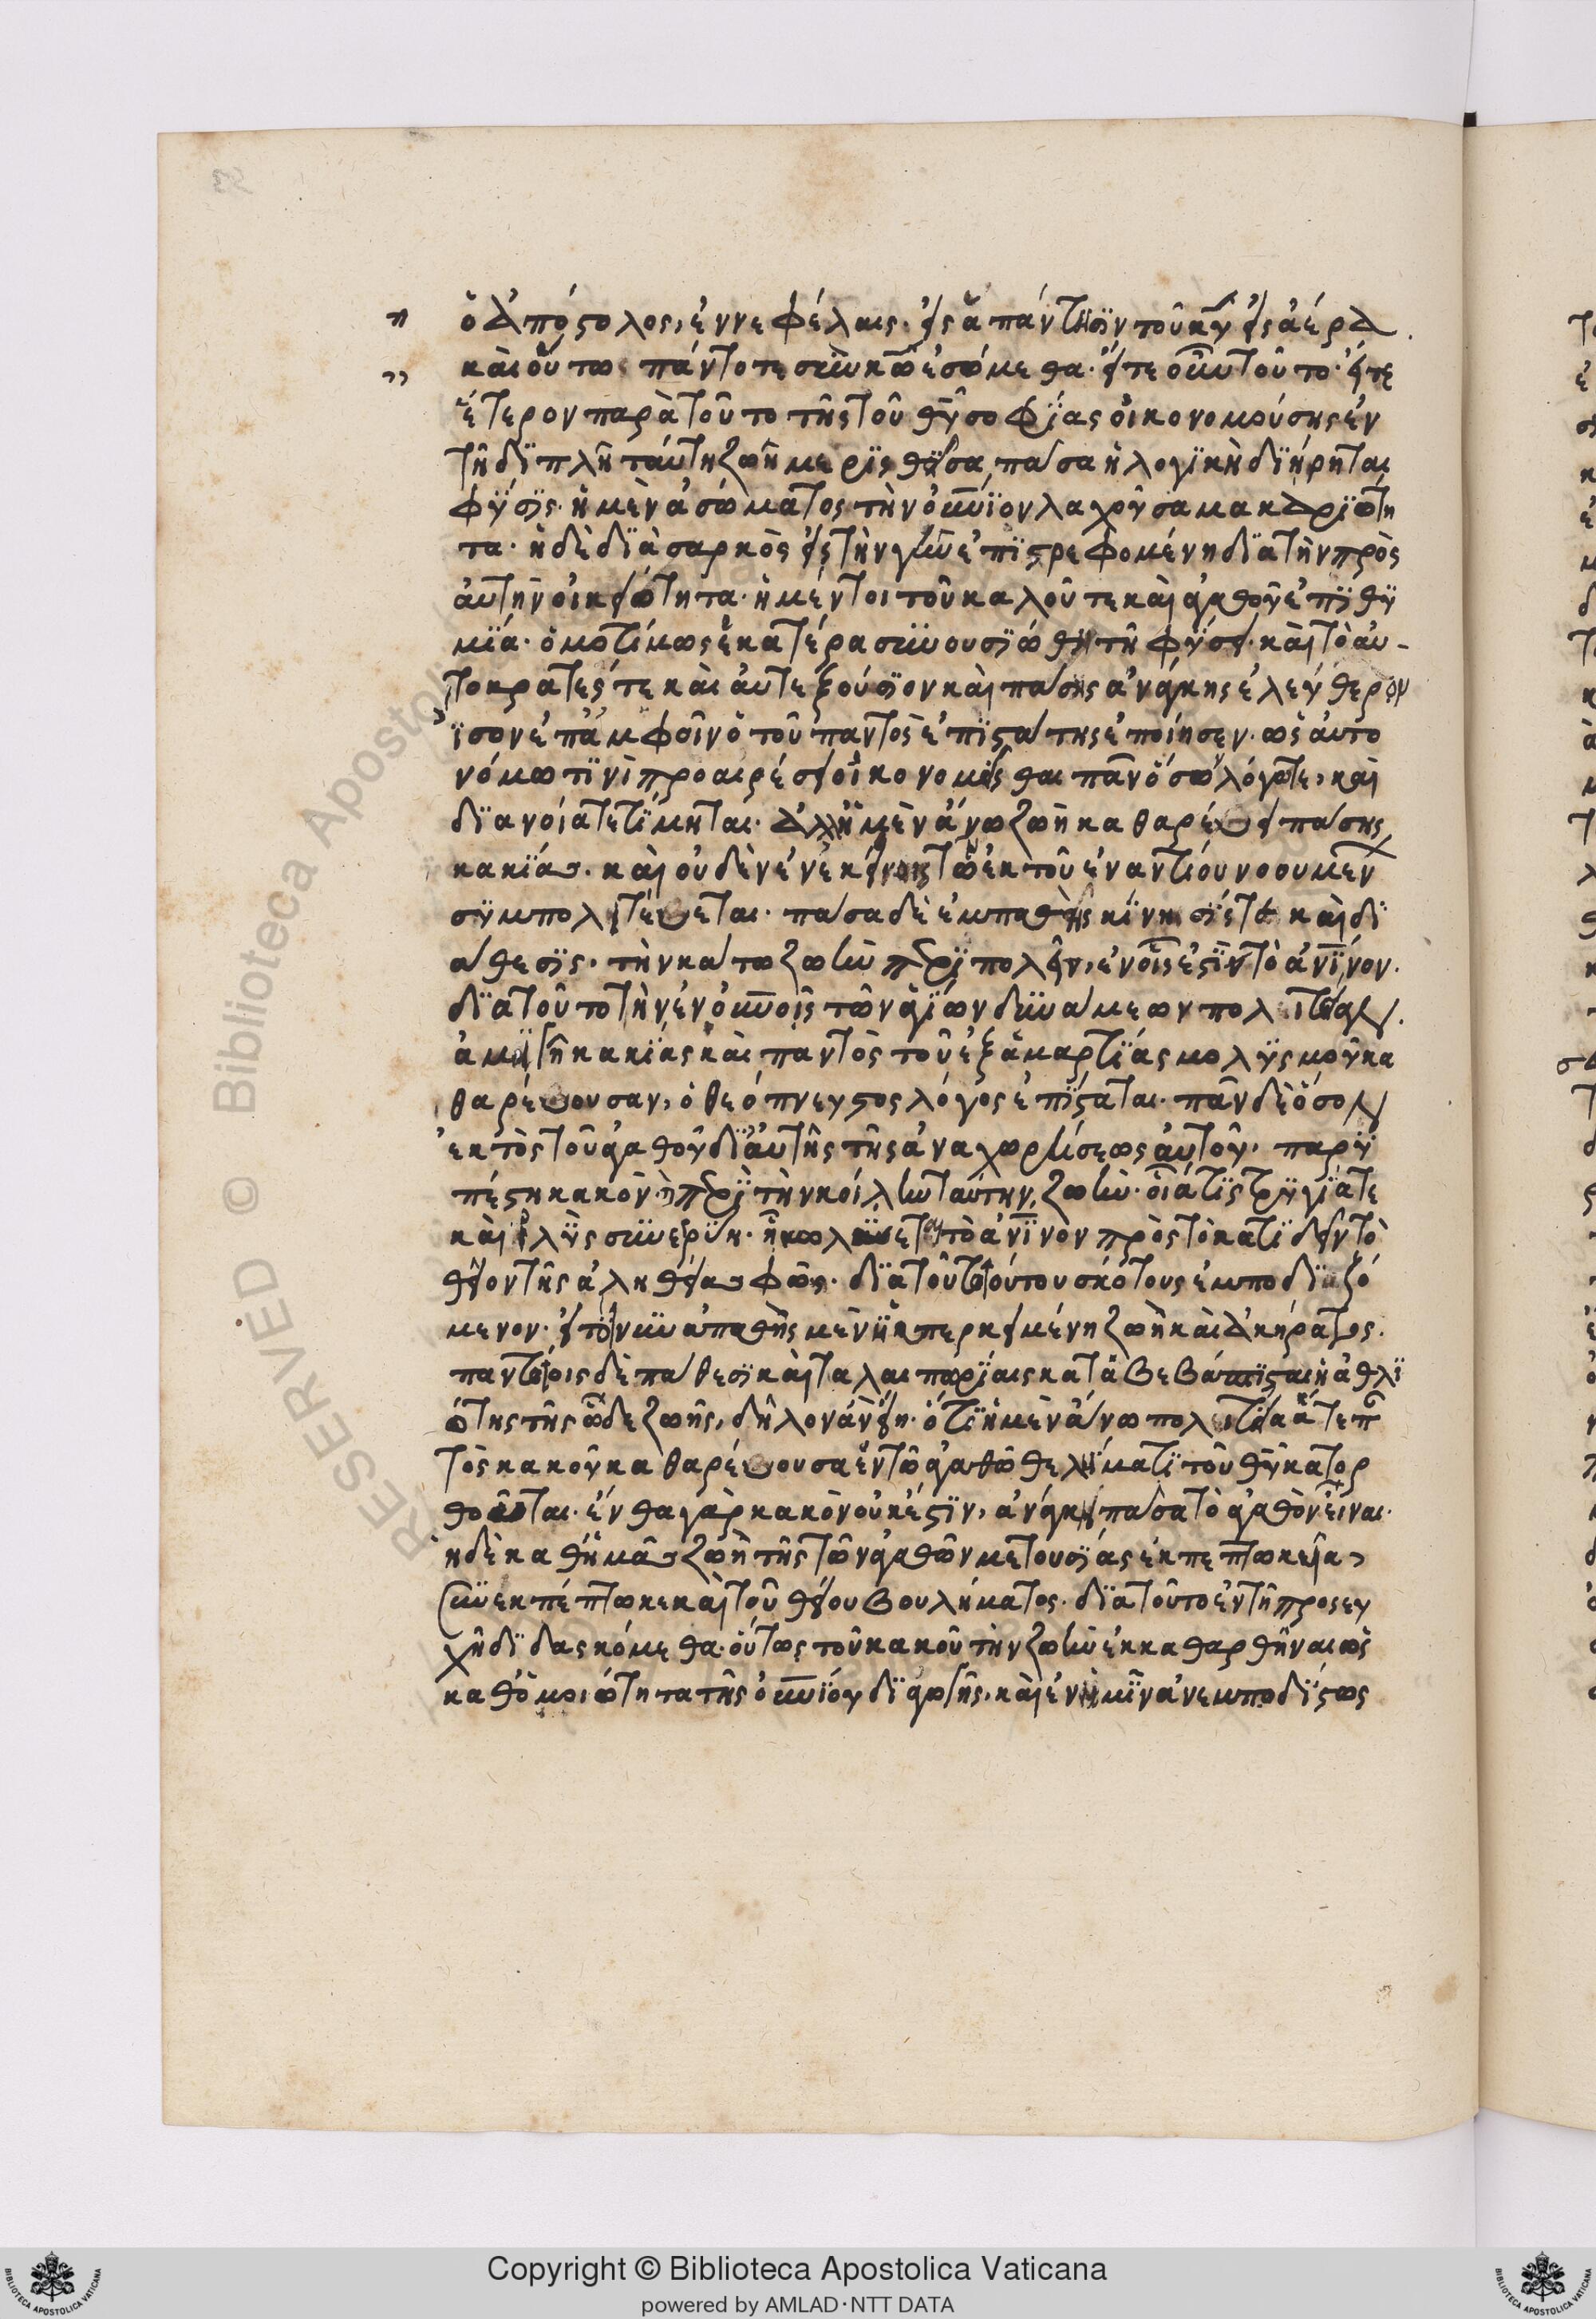 ὁ ἀπόστολος, ἐν νεφέλαις. εἰς ἀπάντησιν τοῦ κυ εἰς ἀέρα.
καὶ οὕτω πάντοτε σὺν κω ἐσόμεθα. εἴτε οὖν τοῦτο. εἴτε
ἕτερον παρὰ τοῦτο τῆς τοῦ θυ σοφίας οἰκονομούσης ἐν
τῆ διπλῆ ταύτη ζωῆ μερισθεῖσα, πᾶσα ἡ λογικὴ διήρηται
φύσις. ἡ μὲν ἀσώματος τὴν οὐνιον λαχοῦσα μακαριότη
τα. ἡ δὲ διὰ σαρκὸς εἰς τὴν γῆν ἐπιστρεφομένη διὰ τὴν πρὸς
αὐτὴν οἰκειότητα. ἡ μέντοι τοῦ καλοῦ τε καὶ ἀγαθοῦ ἐπιθυ
μία. ὁμοτίμως ἑκατέρα συνουσιώθη τῆ φύσει. καὶ τὸ αὐ-
τοκρατές τε καὶ αὐτεξούσιον καὶ πάσης ἀνάγκης ἐλεύθερον
ἴσον ἐπ' ἀμφοῖν ὁ τοῦ παντὸς ἐπιστάτης ἐποίησεν. ὡς αὐτο
νόμω τινὶ προαιρέσει οἰκονομεῖσθαι πᾶν ὅσω λόγω τε, καὶ
διανοία τετίμηται. ἀλλ' ἡ μὲν ἄνω ζωὴ καθαρεύει πάσης
κακίας. καὶ οὐδὲν ἐν ἐκείνοις τῶ ἐκ τοῦ ἐναντίου νοουμεν
συμπολιτεύεται. πᾶσα δὲ ἐμπαθὴς κίνησίς τε καὶ δι
άθεσις. τὴν κάτω ζωὴν περιπολεῖ, ἐν οἷς ἐστιν τὸ ανινον.
διὰ τοῦτο τὴν ἐν οὐνοις τῶν ἁγίων δυνάμεων πολιτείαν.
ἀμιγῆ κακίας καὶ παντὸς τοῦ ἐξ ἁμαρτίας μολυσμοῦ κα
θαρεύουσαν, ὁ θεόπνευστος λόγος ἐπίσταται. πᾶν δὲ ὅσον
ἐκτὸς τοῦ ἀγαθοῦ δι' αὐτῆς τῆς ἀναχωρήσεως αὐτοῦ. παρυ
πέστη κακὸν περὶ τὴν κοίλην ταύτην ζωὴν. οἷά τις τρυγία τε
καὶ ἰλὺς συνερύη. ἣ κωλύεται τὸ ανινὸν πρὸς τὸ κατιδεῖν τὸ
θεῖον τῆς ἀληθείας φῶς. διὰ τοῦ τοιούτου σκότους ἐμποδιζό
μενον. εἰ τοίνυν ἀπαθὴς μὲν ἡ ὑπερκειμένη ζωὴ καὶ ἀκήρατος.
παντοίοις δὲ πάθεσι καὶ ταλαιπωρίαις καταβεβάπτισται ἡ ἀθλι
ότης τῆς ὧδε ζωῆς, δῆλον ἂν εἴη. ὅτι ἡ μὲν ἄνω πολιτεία ἅτε π
τὸς κακοῦ καθαρεύουσα ἐν τῶ ἀγαθῶ θελήματι τοῦ θυ κατορ
θοῦται. ἔνθα γὰρ κακὸν οὐκ ἔστιν, ἀνάγκη πᾶσα τὸ ἀγαθὸν εἶναι.
ἡ δὲ καθ' ἡμᾶς ζωὴ τῆς τῶν ἀγαθῶν μετουσίας ἐκπεπτωκεῖα,
συνεκπέπτωκε καὶ τοῦ θείου βουλήματος. διὰ τοῦτο ἐν τῆ προσευ
χῆ διδασκόμεθα. οὕτως τοῦ κακοῦ τὴν ζωὴν ἐκκαθαρθῆναι ὡς
καθ' ὁμοιότητα τῆς οὐνιου διαγωγῆς, καὶ ἐν ἡμῖν ἀνεμποδίστως